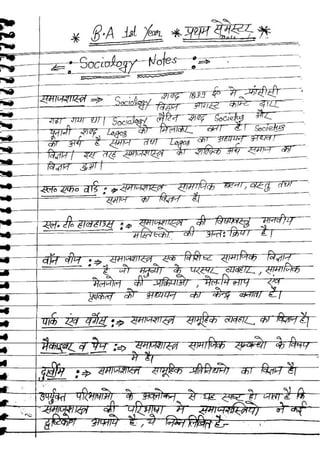 * B.A 1st Year * प्रथम सेमेस्टर *
←: Sociology Notes :→
समाजशास्त्र ⇒ Sociology शब्द 1838 ई० में फ्रांसीसी
विज्ञान आगस्ट काम्टे द्वारा
गढ़ा गया था। Sociology लैटिन शब्द Societus और
यूनानी शब्द Logos को मिलाकर बना है। Societus
का अर्थ है समाज तथा Logos का अध्ययन अथवा
विज्ञान। इस तरह समाजशास्त्र का शाब्दिक अर्थ समाज का
विज्ञान हुआ।
एल० एफ० वार्ड :⇒ समाजशास्त्र सामाजिक घटना, वस्तु तथा
समाज का विज्ञान है।
एल० टी० हाबहाउस :⇒ समाजशास्त्र की विषयवस्तु मानवीय
मस्तिष्को की अन्तः क्रिया है।
वॉन वीज :⇒ समाजशास्त्र एक विशिष्ट सामाजिक विज्ञान
है जो मनुष्यो के परस्पर व्यवहार, सामाजिक
मेलजोल की प्रक्रियाओ, मेल मिलाप एंव
पृथकत्व को अध्ययन का केन्द्र बनाता है।
पार्क एंव बर्गेस :⇒ समाजशास्त्र सामूहिक व्यवहार का विज्ञान है।
मैकाइवर व पेज :⇒ समाजशास्त्र सामाजिक सम्बन्धो के विषय
में है।
दुर्खीम :⇒ समाजशास्त्र सामूहिक प्रतिनिधानो का विज्ञान है।
उपर्युक्त परिभाषाओ के अवलोकन से यह स्पष्ट हो जाता है कि
समाजशास्त्र की परिभाषा में समाजशास्त्रियो ने कई
दृष्टिकोण अपनाये है, ये निम्नलिखित है:-